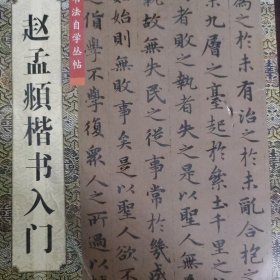 赵孟頫楷书入门
书法自学丛帖
為之於未有治之於未亂合抱之
九層之臺起於累土千里之
者敗之執者失之是以聖人
故無失民之從事常於幾成
始則無敗事矣是以聖人欲不
貨學不學復眾人之所過